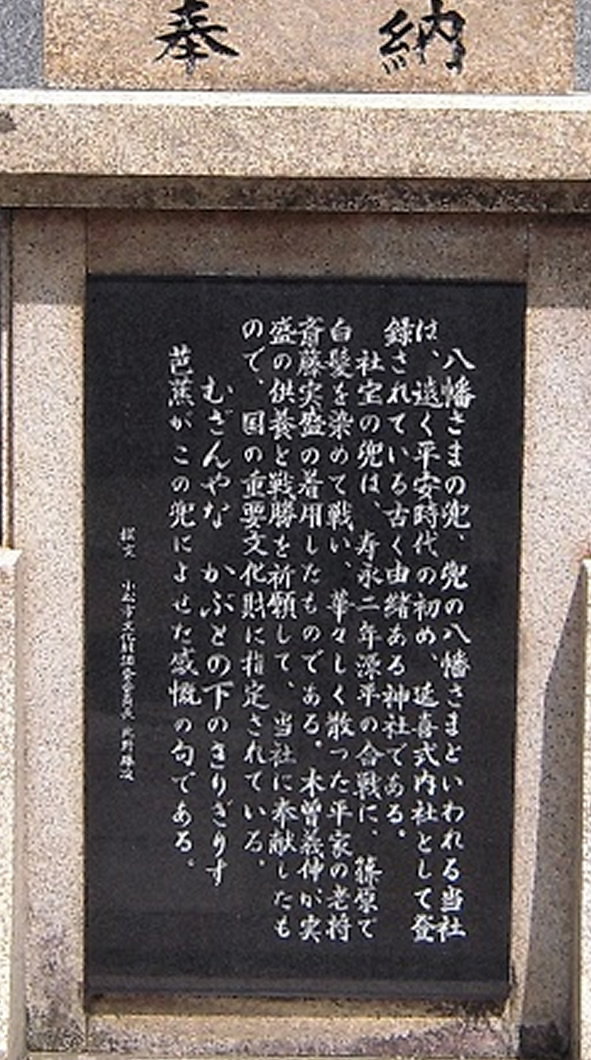 奉納
八幡さまの兜、兜の八幡さまといわれる当社
は、遠く平安時代の初め、延喜式内社として登
録されている古く由緒ある神社である。
社宝の兜は、寿永二年源平の合戦に、篠原で
白髪を染めて戦い、華々しく散った平家の老将
斎藤実盛の着用したものである。木曽義仲が実
盛の供養と戦勝を祈願して、当社に奉献したも
ので、国の重要文化財に指定されている。
むざんやな かぶとの下のきりぎりす
芭蕉がこの兜によせた感慨の句である。
撰文 小松市文化財調査委員長